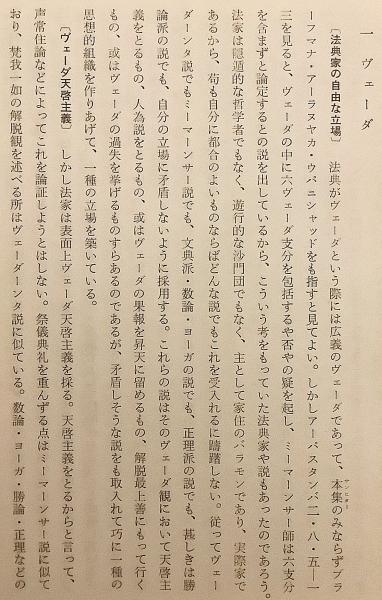 一 ヴェーダ
〔法典家の自由な立場〕 法典がヴェーダという際には広義のヴェーダであって、本集のみならずブラ
ーフマナ・アーラヌヤカ・ウパニシャッドをも指すと見てよい。しかしアーパスタンバ二・八・五—一
三を見ると、ヴェーダの中に六ヴェーダ支分を包括するや否やの疑を起し、ミーマーンサー師は六支分
を含まずと論定するとの説を出しているから、こういう考をもっていた法典家や説もあったのであろう。
法家は隠遁的な哲学者でもなく、遊行的な沙門団でもなく、主として家住のバラモンであり、実際家で
あるから、苟も自分に都合のよいものならばどんな説でもこれを受入れるに躊躇しない。従ってヴェー
ダーンタ説でもミーマーンサー説でも、文典派・数論・ヨーガの説でも、正理派の説でも、甚しきは勝
論派の説でも、自分の立場に矛盾しないように採用する。これらの説はそのヴェーダ観において天啓主
義をとるもの、人為説をとるもの、或はヴェーダの果報を昇天に留めるもの、解脱最上善にもって行く
もの、或はヴェーダの過失を挙げるものすらあるのであるが、矛盾しそうな説をも取入れて巧に一種の
思想的組織を作りあげて、一種の立場を築いている。
〔ヴェーダ天啓主義〕 しかし法家は表面上ヴェーダ天啓主義を採る。天啓主義をとるからと言って、
声常住論などによってこれを論証しようとはしない。祭儀典礼を重んずる点はミーマーンサー説に似て
おり、梵我一如の解脱観を述べる所はヴェーダーンタ説に似ている。数論・ヨーガ・勝論・正理などの